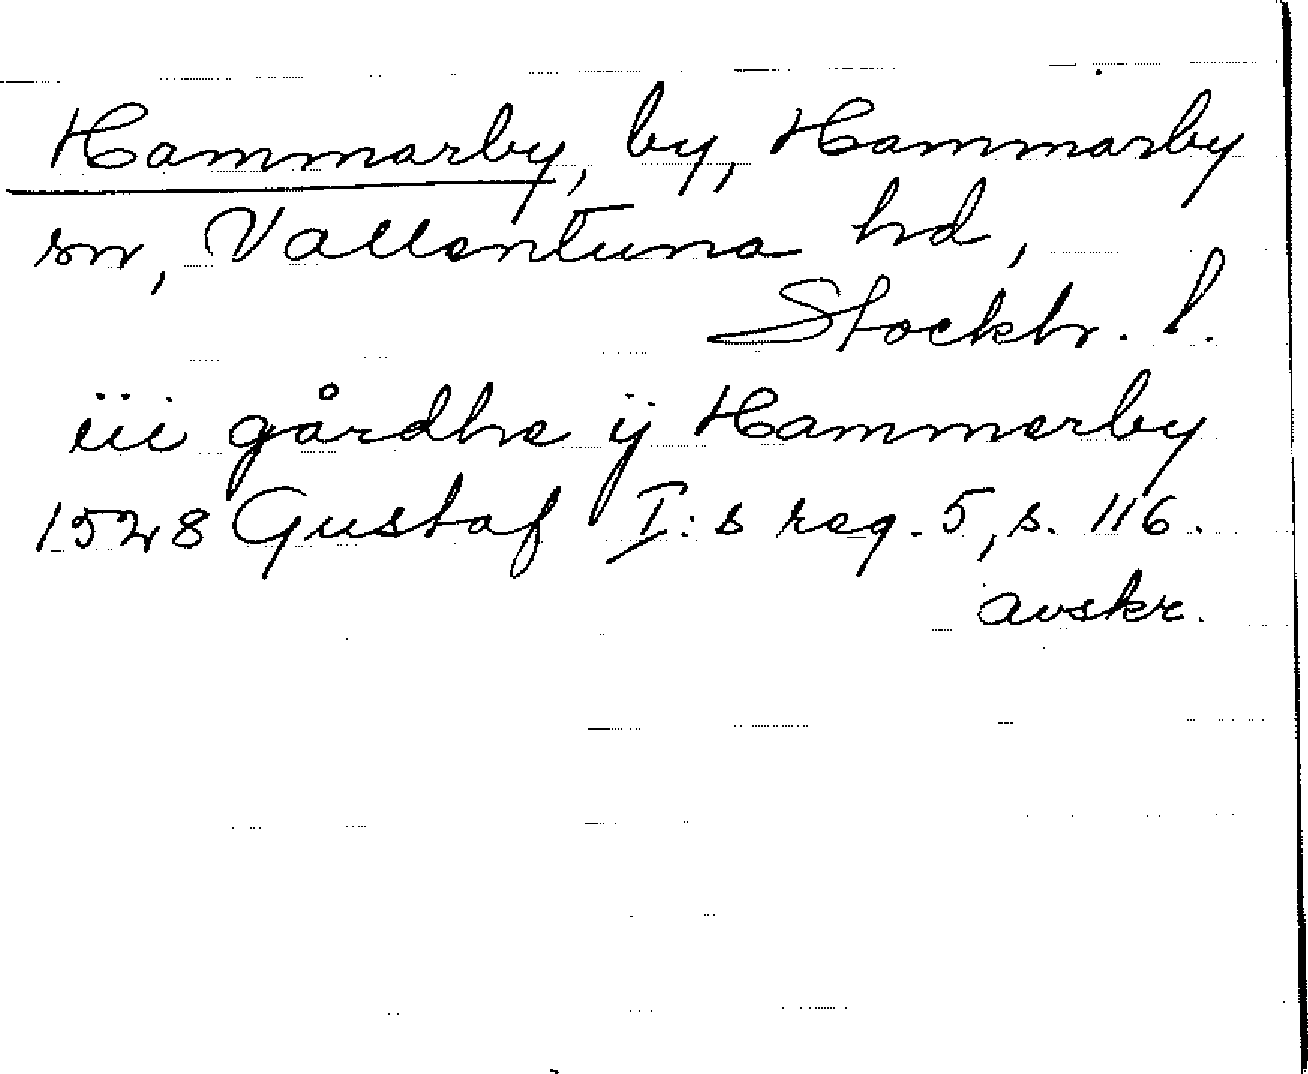 Hammarby, by, Hammarby
sn, Vallentuna hd,
Stockh. l.
iii gårdhe ij Hammerby
1528 Gustaf I:s reg. 5, s. 116.
avskr.